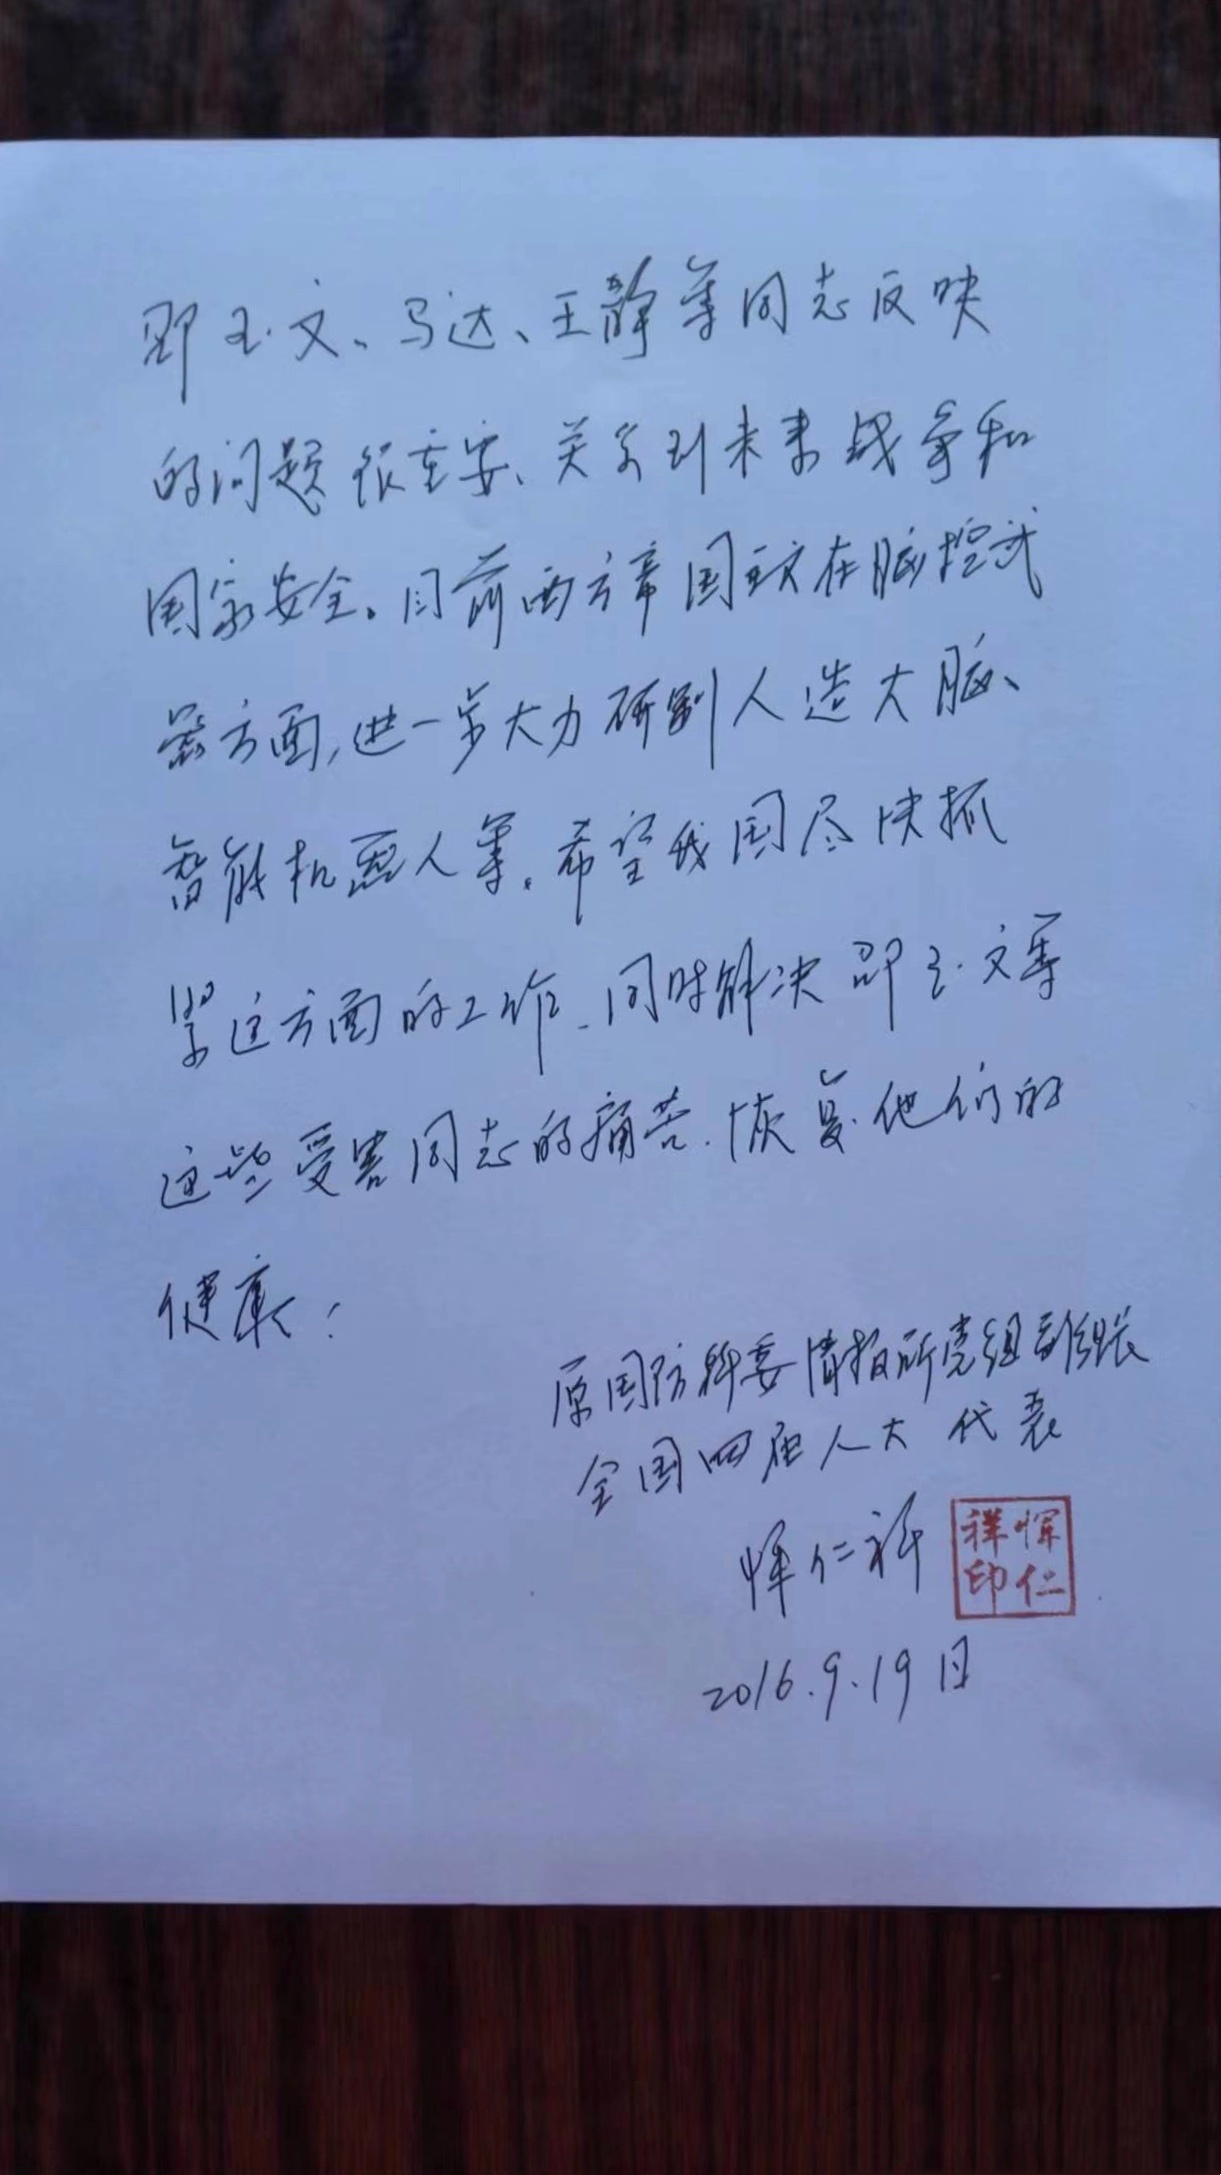 邵玉文、马达、王静等同志反映
的问题很重要、关系到未来战争和
国家安全。目前西方帝国主义在脑控武
器方面,进一步大力研制人造大脑、
智能机器人等。希望我国尽快抓
紧这方面的工作、同时解决邵玉文等
这些受害同志的痛苦.恢复他们的
健康!
原国防科委情报所党组副组长
全国四届人大代表
恽仁祥
祥恽
印仁
2016.9.19日